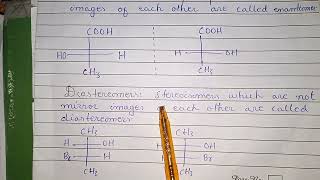 images of each other are called enantiomer
COOH COOH
HO H H OH
CH3 CH3
Diastereomers: stereoisomers which are not
mirror images of each other are called
diastereomers
CH3 CH3
H OH H OH
Br H H Br
CH3 CH3